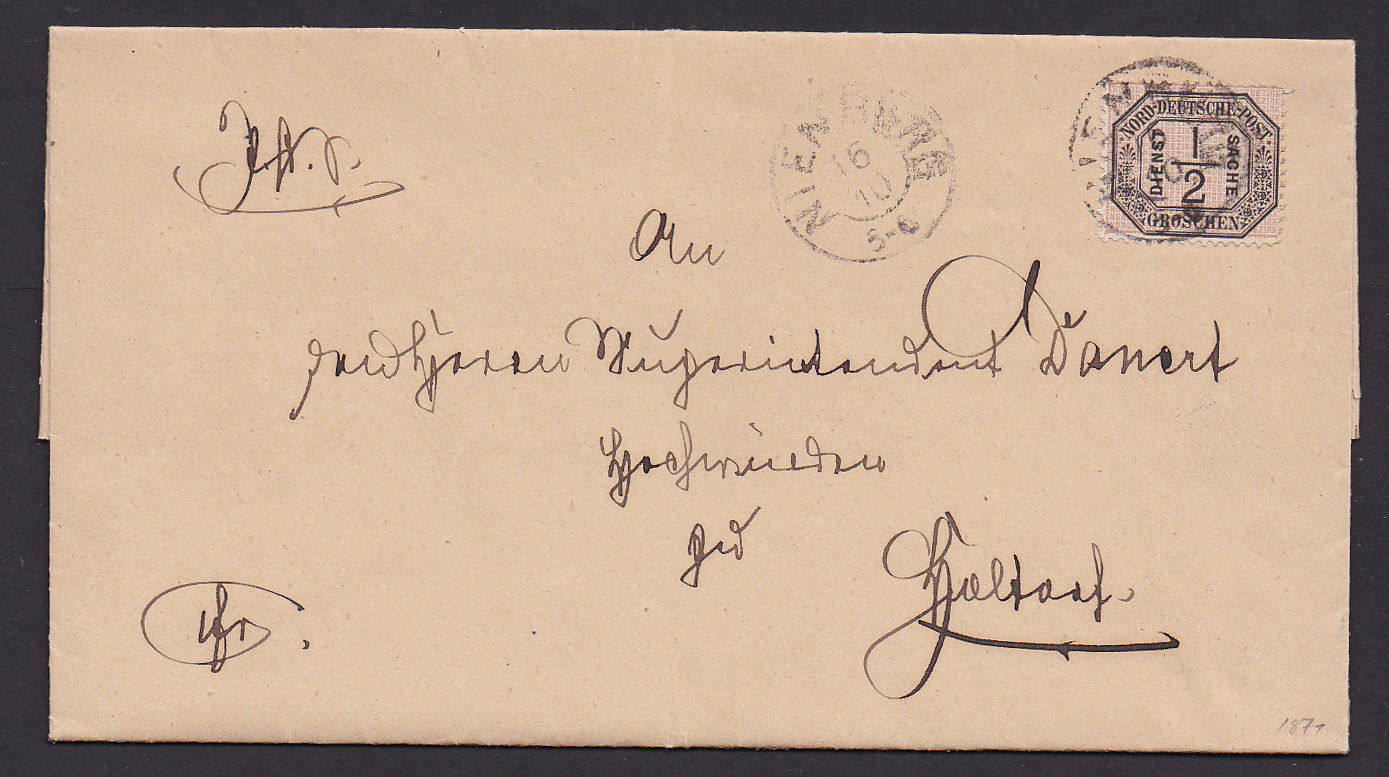 NIENBURG
16
10
5-6
NORD-DEUTSCHE-POST
DIENST SACHE
1/2
GROSCHEN
An
den Herrn Superintendent Danert
Hochwürden
zu
Holtorf.
fr.
1871